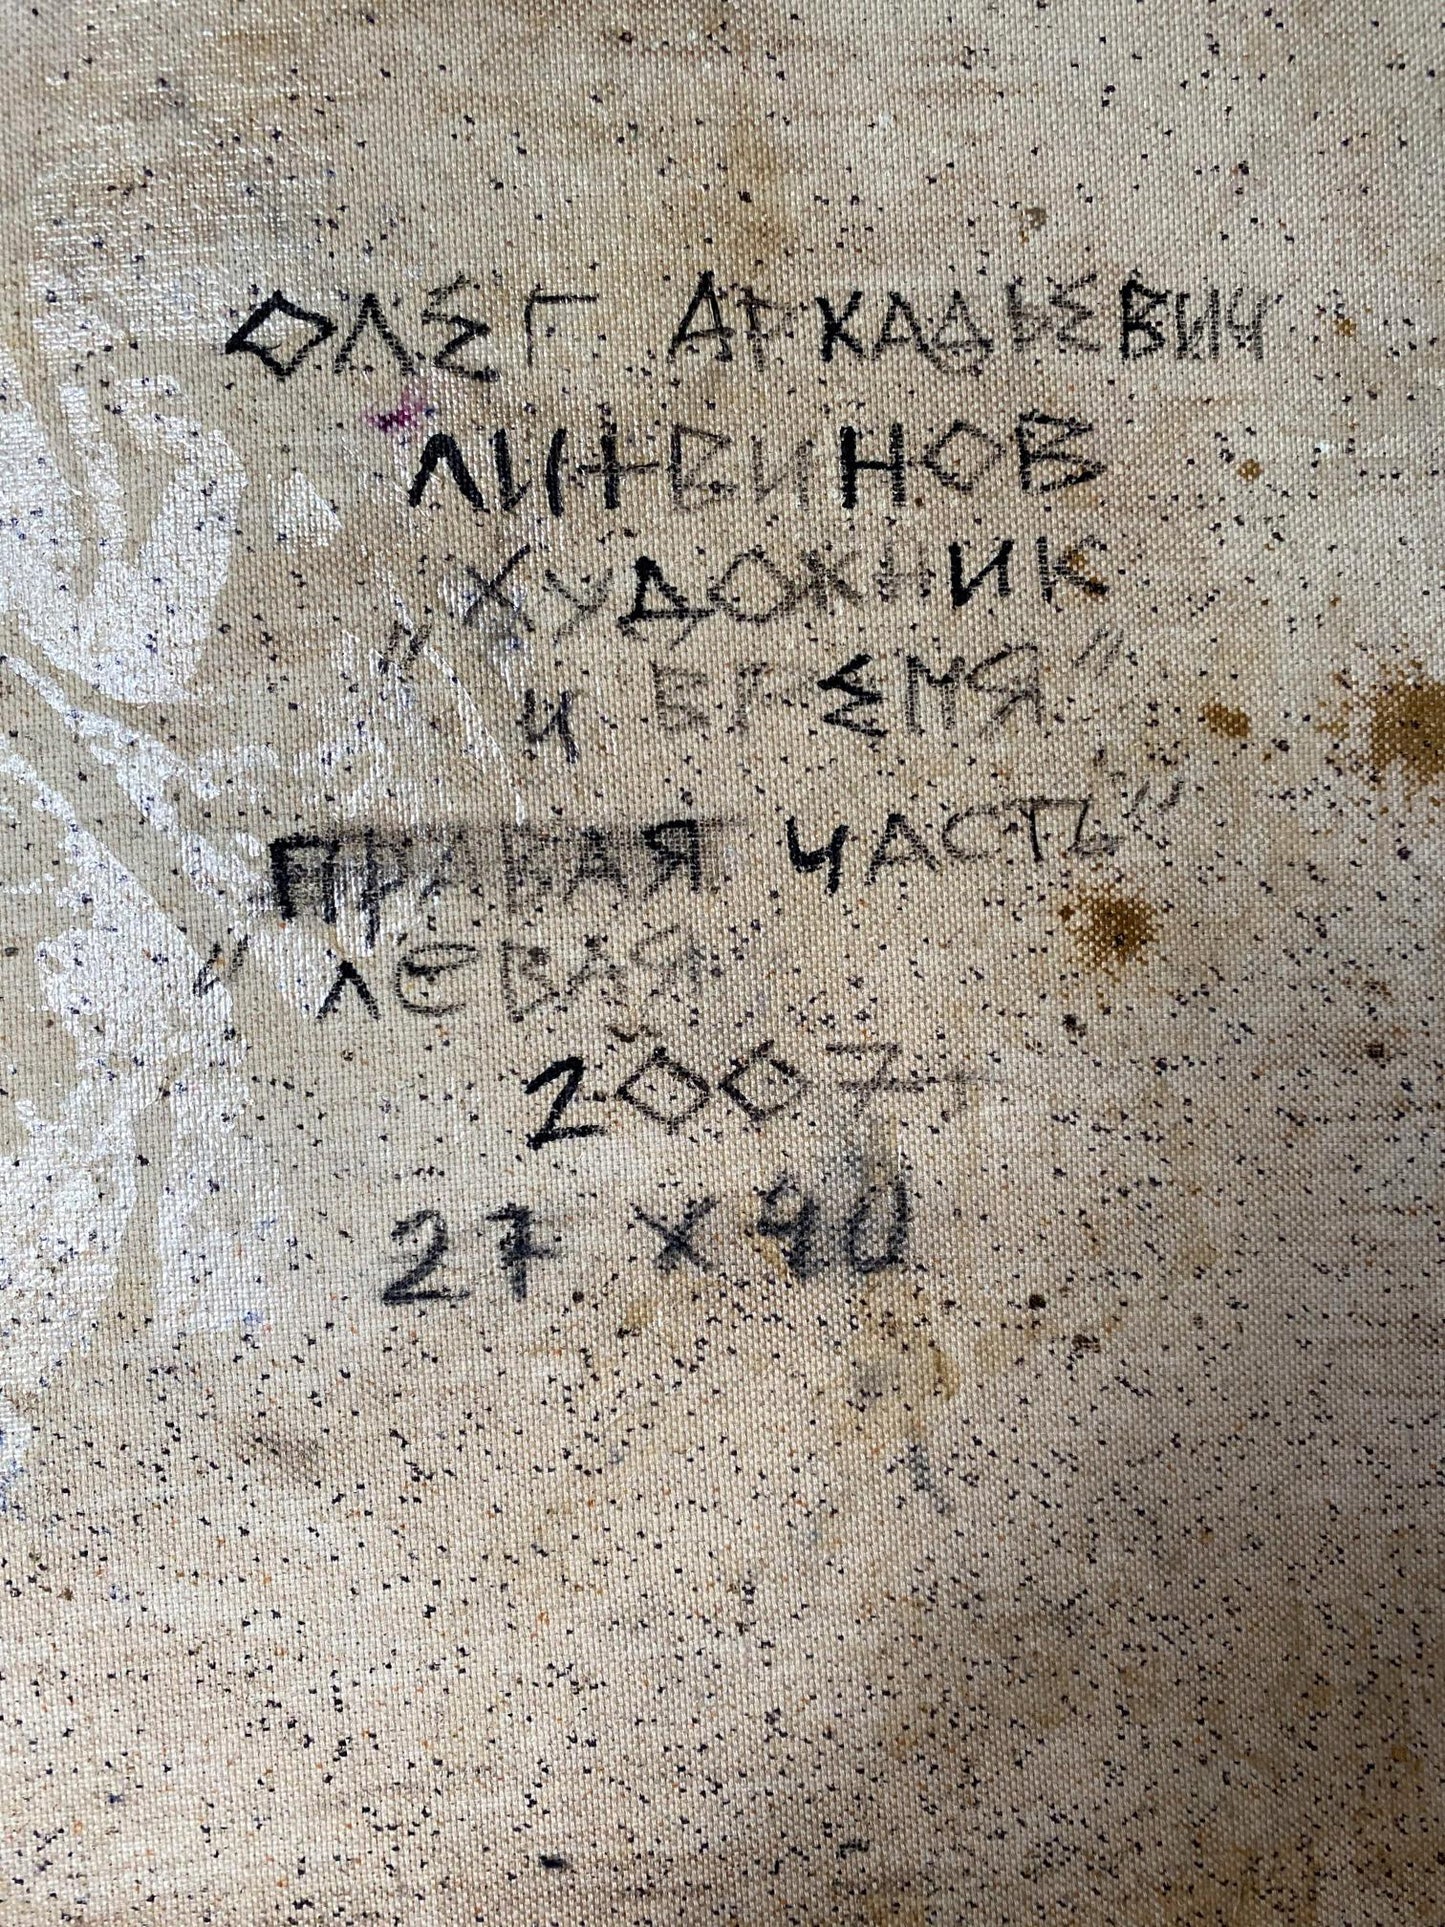 ОЛЕГ АРКАДЬЕВИЧ
ЛИТВИНОВ
"ХУДОЖНИК
и ВРЕМЯ"
ПРАВАЯ ЧАСТЬ"
"ЛЕВАЯ"
2007
27 х 90